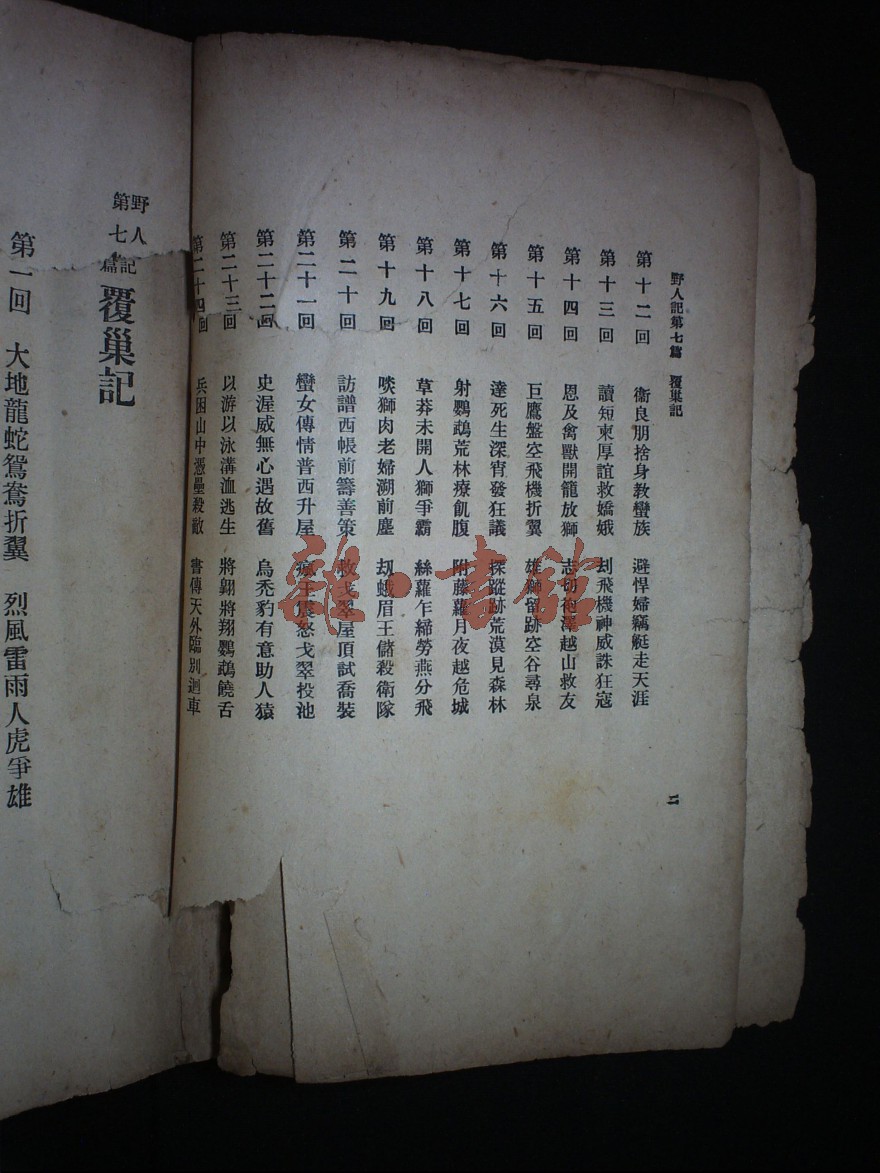 野人記第七篇 覆巢記
第十二回 衞良朋捨身教蠻族 避悍婦竊艇走天涯
第十三回 讀短柬厚誼救嬌娥 刦飛機神威誅狂寇
第十四回 恩及禽獸開籠放獅 志切袍澤越山救友
第十五回 巨鷹盤空飛機折翼 雄獅留跡空谷尋泉
第十六回 達死生深宵發狂議 探蹤跡荒漠見森林
第十七回 射鸚鵡荒林療飢腹 附藤蘿月夜越危城
第十八回 草莽未開人獅爭霸 絲蘿乍締勞燕分飛
第十九回 啖獅肉老婦溯前塵 刼蛾眉王儲殺衛隊
第二十回 訪譜西帳前籌善策 救戈翠屋頂試喬裝
第二十一回 蠻女傳情普西升屋 瘋王震怒戈翠投池
第二十二回 史渥威無心遇故舊 烏禿豹有意助人猿
第二十三回 以游以泳溝洫逃生 將翺將翔鸚鵡饒舌
第二十四回 兵困山中憑壘殺敵 書傳天外臨別迴車
二
野人記
第七篇
覆巢記
第一回 大地龍蛇鴛鴦折翼 烈風雷雨人虎爭雄
雜·書館